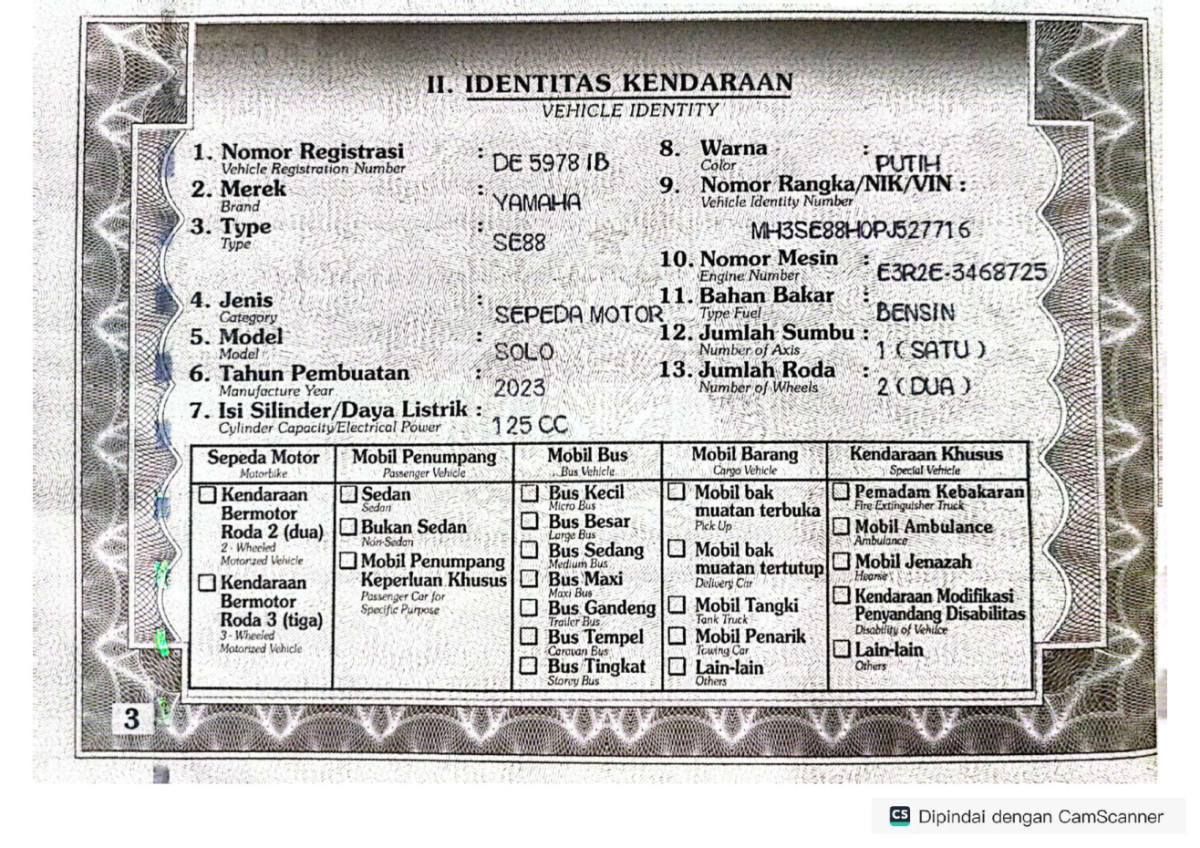 II. IDENTITAS KENDARAAN
VEHICLE IDENTITY
1. Nomor Registrasi : DE 5978 IB
Vehicle Registration Number
2. Merek : YAMAHA
Brand
3. Type : SE88
Type
4. Jenis : SEPEDA MOTOR
Category
5. Model : SOLO
Model
6. Tahun Pembuatan : 2023
Manufacture Year
7. Isi Silinder/Daya Listrik : 125 CC
Cylinder Capacity/Electrical Power
8. Warna : PUTIH
Color
9. Nomor Rangka/NIK/VIN :
Vehicle Identity Number
MH3SE88H0PJ527716
10. Nomor Mesin : E3R2E-3468725
Engine Number
11. Bahan Bakar : BENSIN
Type Fuel
12. Jumlah Sumbu : 1 ( SATU )
Number of Axis
13. Jumlah Roda : 2 ( DUA )
Number of Wheels
Sepeda Motor
Motorbike
Kendaraan
Bermotor
Roda 2 (dua)
2 - Wheeled
Motorized Vehicle
Kendaraan
Bermotor
Roda 3 (tiga)
3 - Wheeled
Motorized Vehicle
Mobil Penumpang
Passenger Vehicle
Sedan
Sedan
Bukan Sedan
Non-Sedan
Mobil Penumpang
Keperluan Khusus
Passenger Car for
Specific Purpose
Mobil Bus
Bus Vehicle
Bus Kecil
Micro Bus
Bus Besar
Large Bus
Bus Sedang
Medium Bus
Bus Maxi
Maxi Bus
Bus Gandeng
Trailer Bus
Bus Tempel
Caravan Bus
Bus Tingkat
Storey Bus
Mobil Barang
Cargo Vehicle
Mobil bak
muatan terbuka
Pick Up
Mobil bak
muatan tertutup
Delivery Car
Mobil Tangki
Tank Truck
Mobil Penarik
Towing Car
Lain-lain
Others
Kendaraan Khusus
Special Vehicle
Pemadam Kebakaran
Fire Extinguisher Truck
Mobil Ambulance
Ambulance
Mobil Jenazah
Hearse
Kendaraan Modifikasi
Penyandang Disabilitas
Disability of Vehilce
Lain-lain
Others
3
CS Dipindai dengan CamScanner